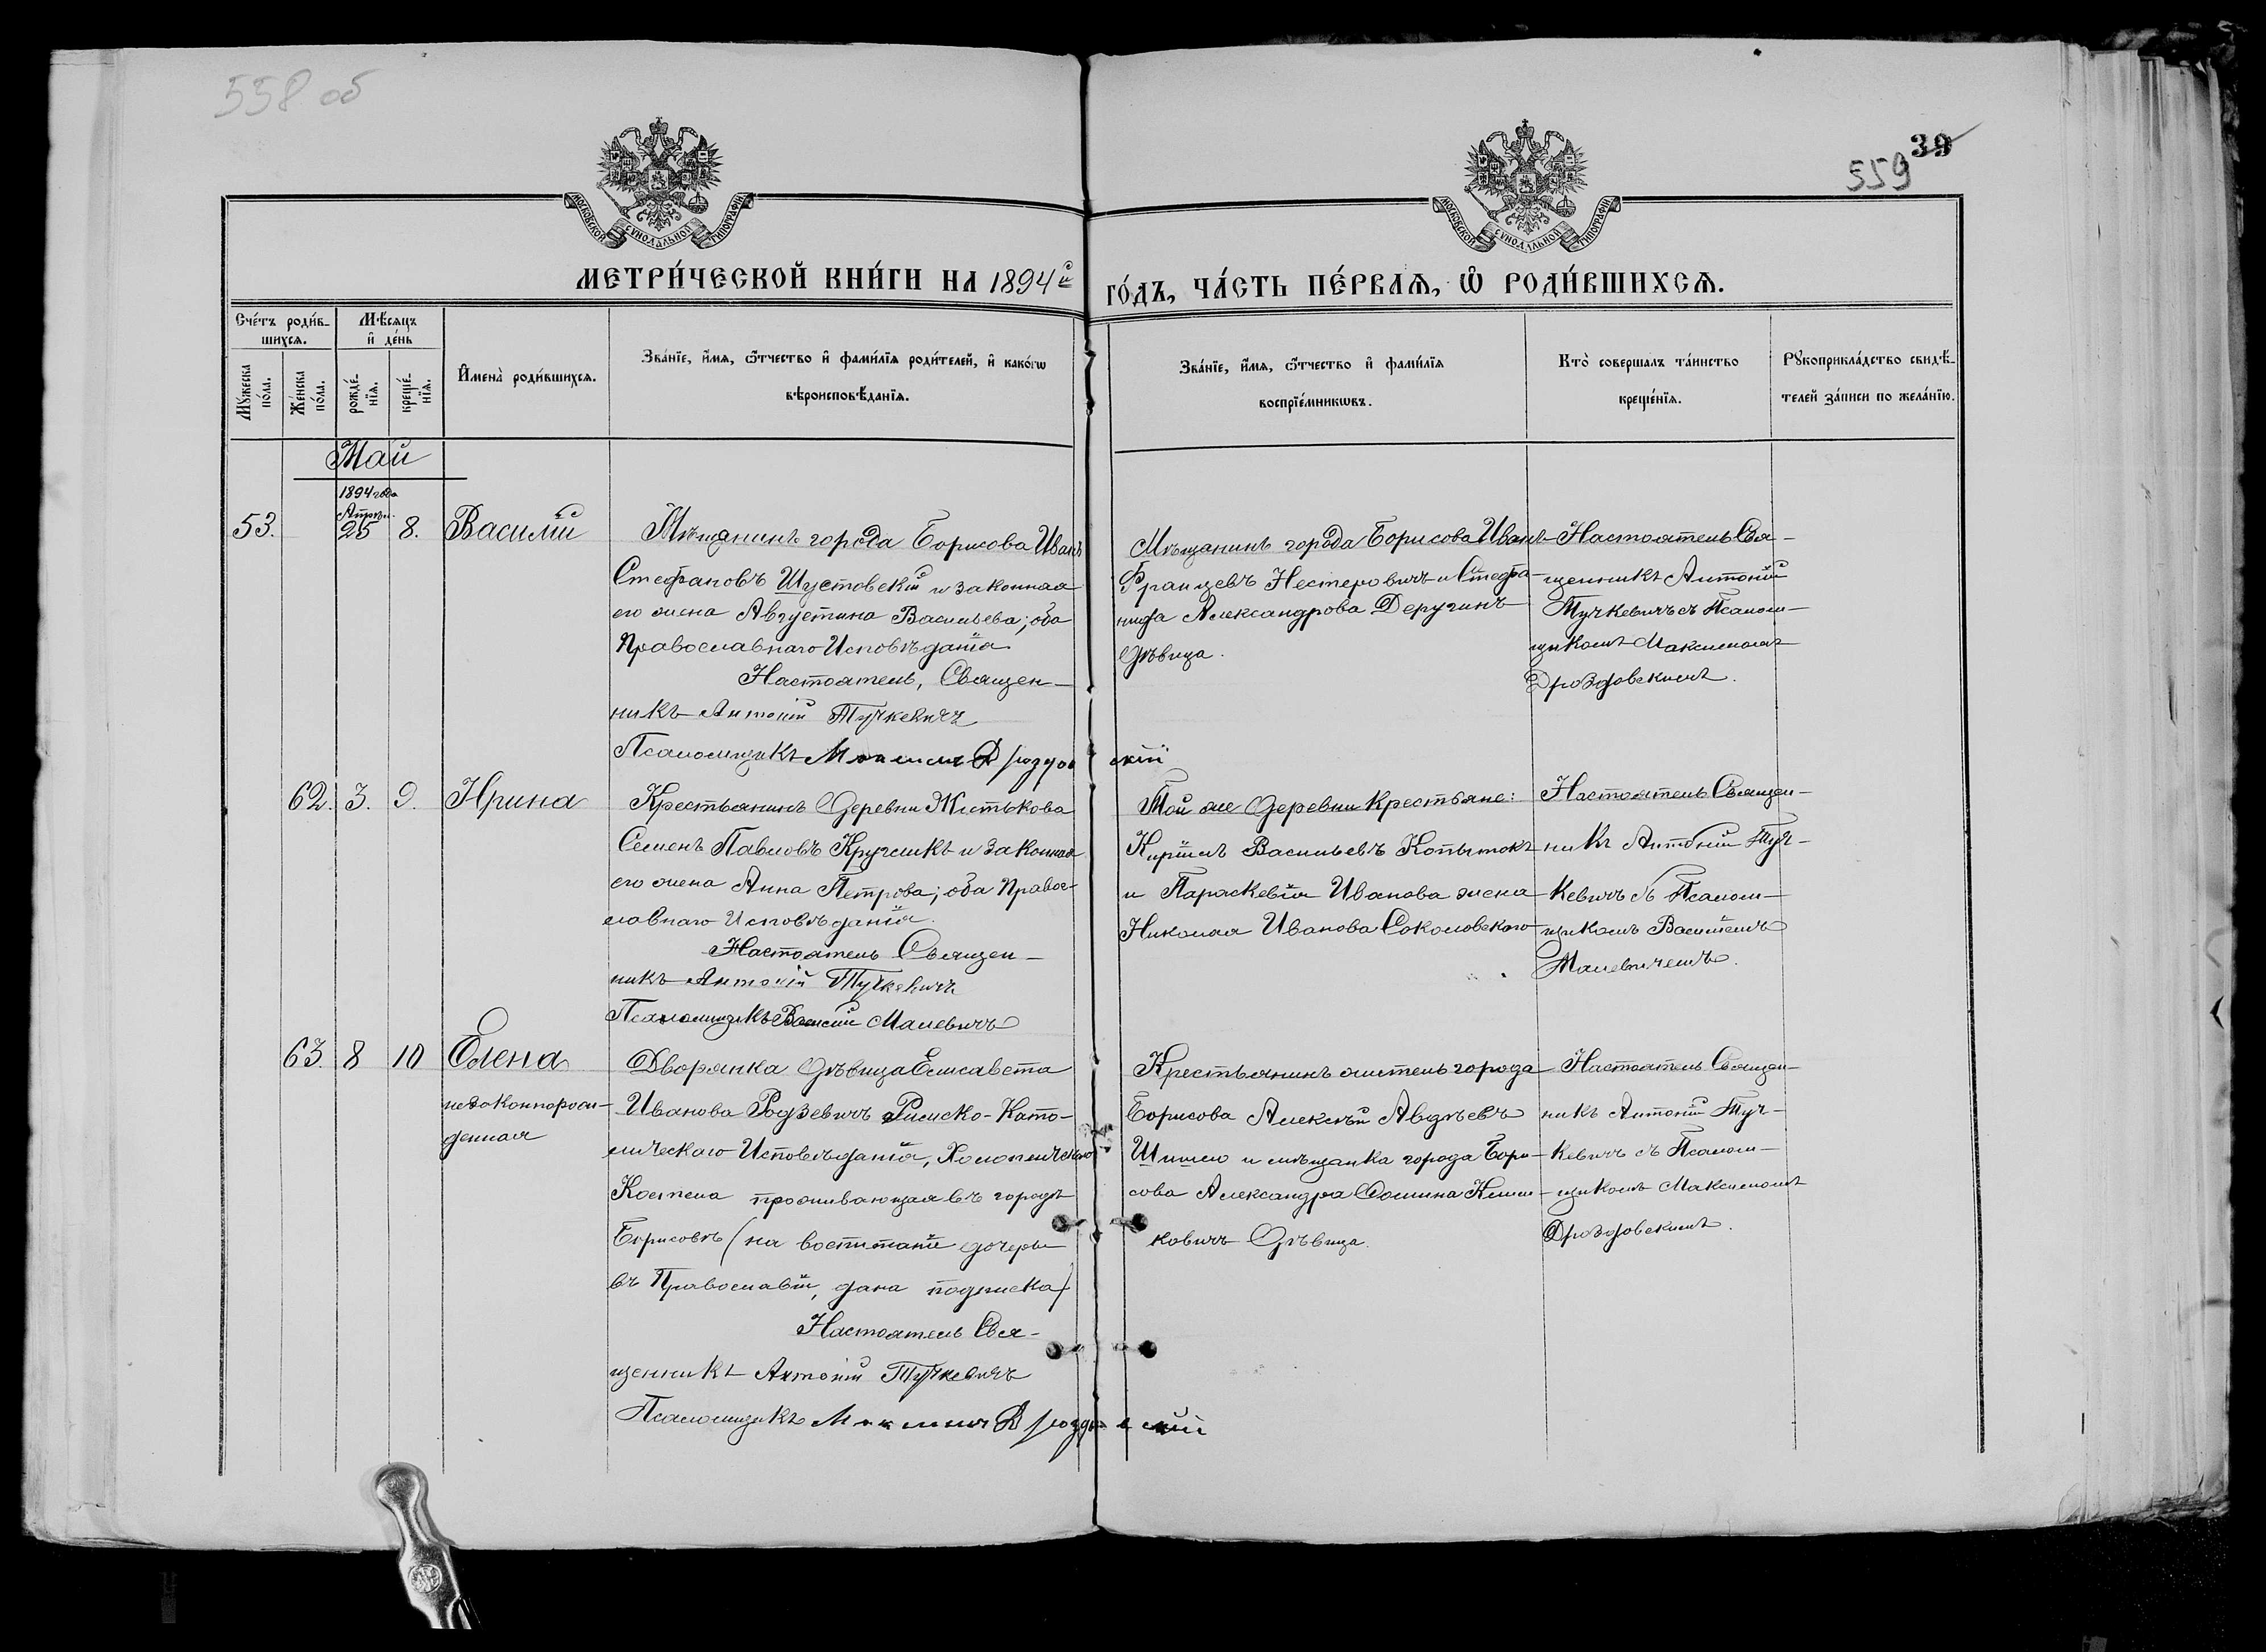 558 об
39
559
МОСКОВСКОЙ СѴНОДАЛЬНОЙ ТИПОГРАФІИ
МОСКОВСКОЙ СѴНОДАЛЬНОЙ ТИПОГРАФІИ
МЕТРИ́ЧЕСКОЙ КНИ́ГИ НА 1894й
ГО́ДЪ, ЧА́СТЬ ПЕ́РВАѦ, Ѡ РОДИ́ВШИХСѦ.
Сче́тъ роди́в-
шихсѧ.
Мꙋ́жеска по́ла.
Же́нска по́ла.
Мѣ́сѧцъ и҆ де́нь
рожде́-нїѧ.
креще́-нїѧ.
И҆мена̀ роди́вшихсѧ.
Зва́нїе, и҆́мѧ, ѻ҆́тчество и҆ фами́лїѧ роди́телей, и҆ како́гѡ
вѣроисповѣ́данїѧ.
Зва́нїе, и҆́мѧ, ѻ҆́тчество и҆ фами́лїѧ
воспрїе́мникѡвъ.
Кто̀ соверша́лъ та́инство
креще́нїѧ.
Рꙋкоприкла́дство свидѣ́-
телей за́писи по жела́нїю.
Май
1894 года
Апрѣл.
53. 25 8. Василій
Мѣщанинъ города Борисова Иванъ
Стефановъ Шустовскій и законная
его жена Августина Васильева; оба
Православнаго Исповѣданія
Настоятель, Священ-
никъ Антоній Тучкевичъ
Псаломщикъ Максимъ Дроздовскій
Мѣщанинъ города Борисова Иванъ
Францевъ Нестеровичъ и Стефа-
нида Александрова Деругинъ
дѣвица.
Настоятель Свя-
щенникъ Антоній
Тучкевичъ съ Псалом-
щикомъ Максимомъ
Дроздовскимъ.
62. 3. 9. Ирина
Крестьянинъ Деревни Житькова
Семенъ Павловъ Кручликъ и законная
его жена Анна Петрова; оба Правос-
лавнаго Исповѣданія.
Настоятель Священ-
никъ Антоній Тучкевичъ
Псаломщикъ Василій Малевичъ
Той же Деревни Крестьяне:
Кириллъ Васильевъ Копытокъ
и Параскевія Иванова жена
Николая Иванова Соколовскаго
Настоятель Священ-
никъ Антоній Туч-
кевичъ съ Псалом-
щикомъ Василіемъ
Малевичемъ.
63. 8 10 Елена
незаконнорож-
денная
Дворянка дѣвица Елисавета
Иванова Родзевичъ Римско-Като-
лическаго Исповѣданія, Холопеническаго
Костела проживающая въ городѣ
Борисовѣ (на воспитаніе дочери
въ Православіи, дана подписка)
Настоятель Свя-
щенникъ Антоній Тучкевичъ
Псаломщикъ Максимъ Дроздовскій
Крестьянинъ житель города
Борисова Алексѣй Авдѣевъ
Шишло и мѣщанка города Бори-
сова Александра Фомина Клим-
ковичъ Дѣвица.
Настоятель Священ-
никъ Антоній Туч-
кевичъ съ Псалом-
щикомъ Максимомъ
Дроздовскимъ.